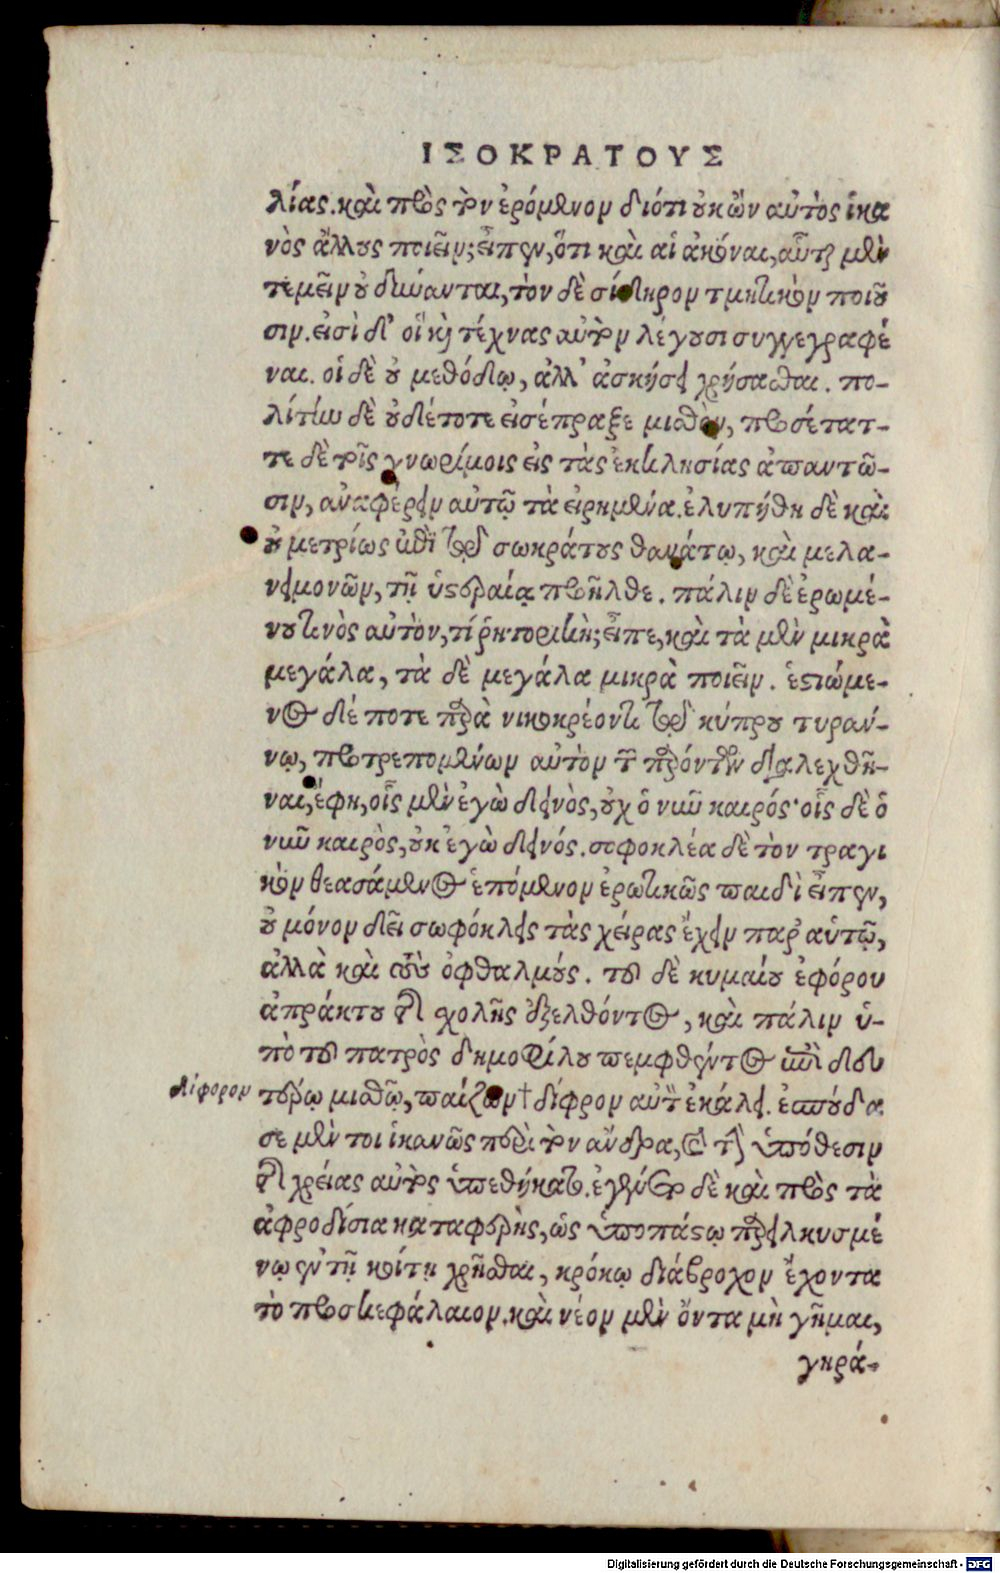 ΙΣΟΚΡΑΤΟΥΣ
λίας. καὶ πρὸς τὸν ἐρόμενον διότι οὐκ ὢν αὐτὸς ἱκα
νὸς ἄλλους ποιεῖν; εἶπεν, ὅτι καὶ αἱ ἀκόναι, αὗται μὲν
τεμεῖν οὐ δύνανται, τὸν δὲ σίδηρον τμητικὸν ποιοῦ
σιν. εἰσὶ δ' οἳ καὶ τέχνας αὐτὸν λέγουσι συγγεγραφέ
ναι. οἱ δὲ οὐ μεθόδῳ, ἀλλ' ἀσκήσει χρήσασθαι. πο-
λίτην δὲ οὐδέποτε εἰσέπραξε μισθὸν, προσέτατ-
τε δὲ τοῖς γνωρίμοις εἰς τὰς ἐκκλησίας ἀπαντῶ-
σιν, ἀναφέρειν αὐτῷ τὰ εἰρημένα. ἐλυπήθη δὲ καὶ
οὐ μετρίως ἐπὶ τῷ σωκράτους θανάτῳ, καὶ μελα-
νειμονῶν, τῇ ὑστεραίᾳ προῆλθε. πάλιν δὲ ἐρωμέ-
νου τινὸς αὐτὸν, τί ῥητορικὴ; εἶπε, καὶ τὰ μὲν μικρὰ
μεγάλα, τὰ δὲ μεγάλα μικρὰ ποιεῖν. ἑστιώμε-
νος δέ ποτε παρὰ νικοκρέοντι τῷ κύπρου τυράν-
νῳ, προτρεπομένων αὐτὸν τῶν παρόντων διαλεχθῆ-
ναι, ἔφη, οἷς μὲν ἐγὼ δεινὸς, οὐχ ὁ νῦν καιρός· οἷς δὲ ὁ
νῦν καιρὸς, οὐκ ἐγὼ δεινός. σοφοκλέα δὲ τὸν τραγι
κὸν θεασάμενος ἑπόμενον ἐρωτικῶς παιδὶ εἶπεν,
οὐ μόνον δεῖ σωφόκλεις τὰς χεῖρας ἔχειν παρ' αὑτῷ,
ἀλλὰ καὶ τοὺς ὀφθαλμούς. τοῦ δὲ κυμαίου ἐφόρου
ἀπράκτου τῆς σχολῆς ἐξελθόντος, καὶ πάλιν ὑ-
πὸ τοῦ πατρὸς δημοφίλου πεμφθέντος ἐπὶ δευ
τέρῳ μισθῷ, παίζων † δίφρον αὐτὸν ἐκάλει. ἐσπούδα
δίφορον
σε μέν τοι ἱκανῶς περὶ τὸν ἄνδρα, καὶ τὴν ὑπόθεσιν
τῆς χρείας αὐτὸς ὑπεθήκατο. ἐγένετο δὲ καὶ πρὸς τὰ
ἀφροδίσια καταφερὴς, ὡς ὑποπάστῳ παρειλκυσμέ
νῳ ἐν τῇ κοίτῃ χρῆσθαι, κρόκῳ διάβροχον ἔχοντα
τὸ προσκεφάλαιον. καὶ νέον μὲν ὄντα μὴ γῆμαι,
γηρά-
Digitalisierung gefördert durch die Deutsche Forschungsgemeinschaft - DFG